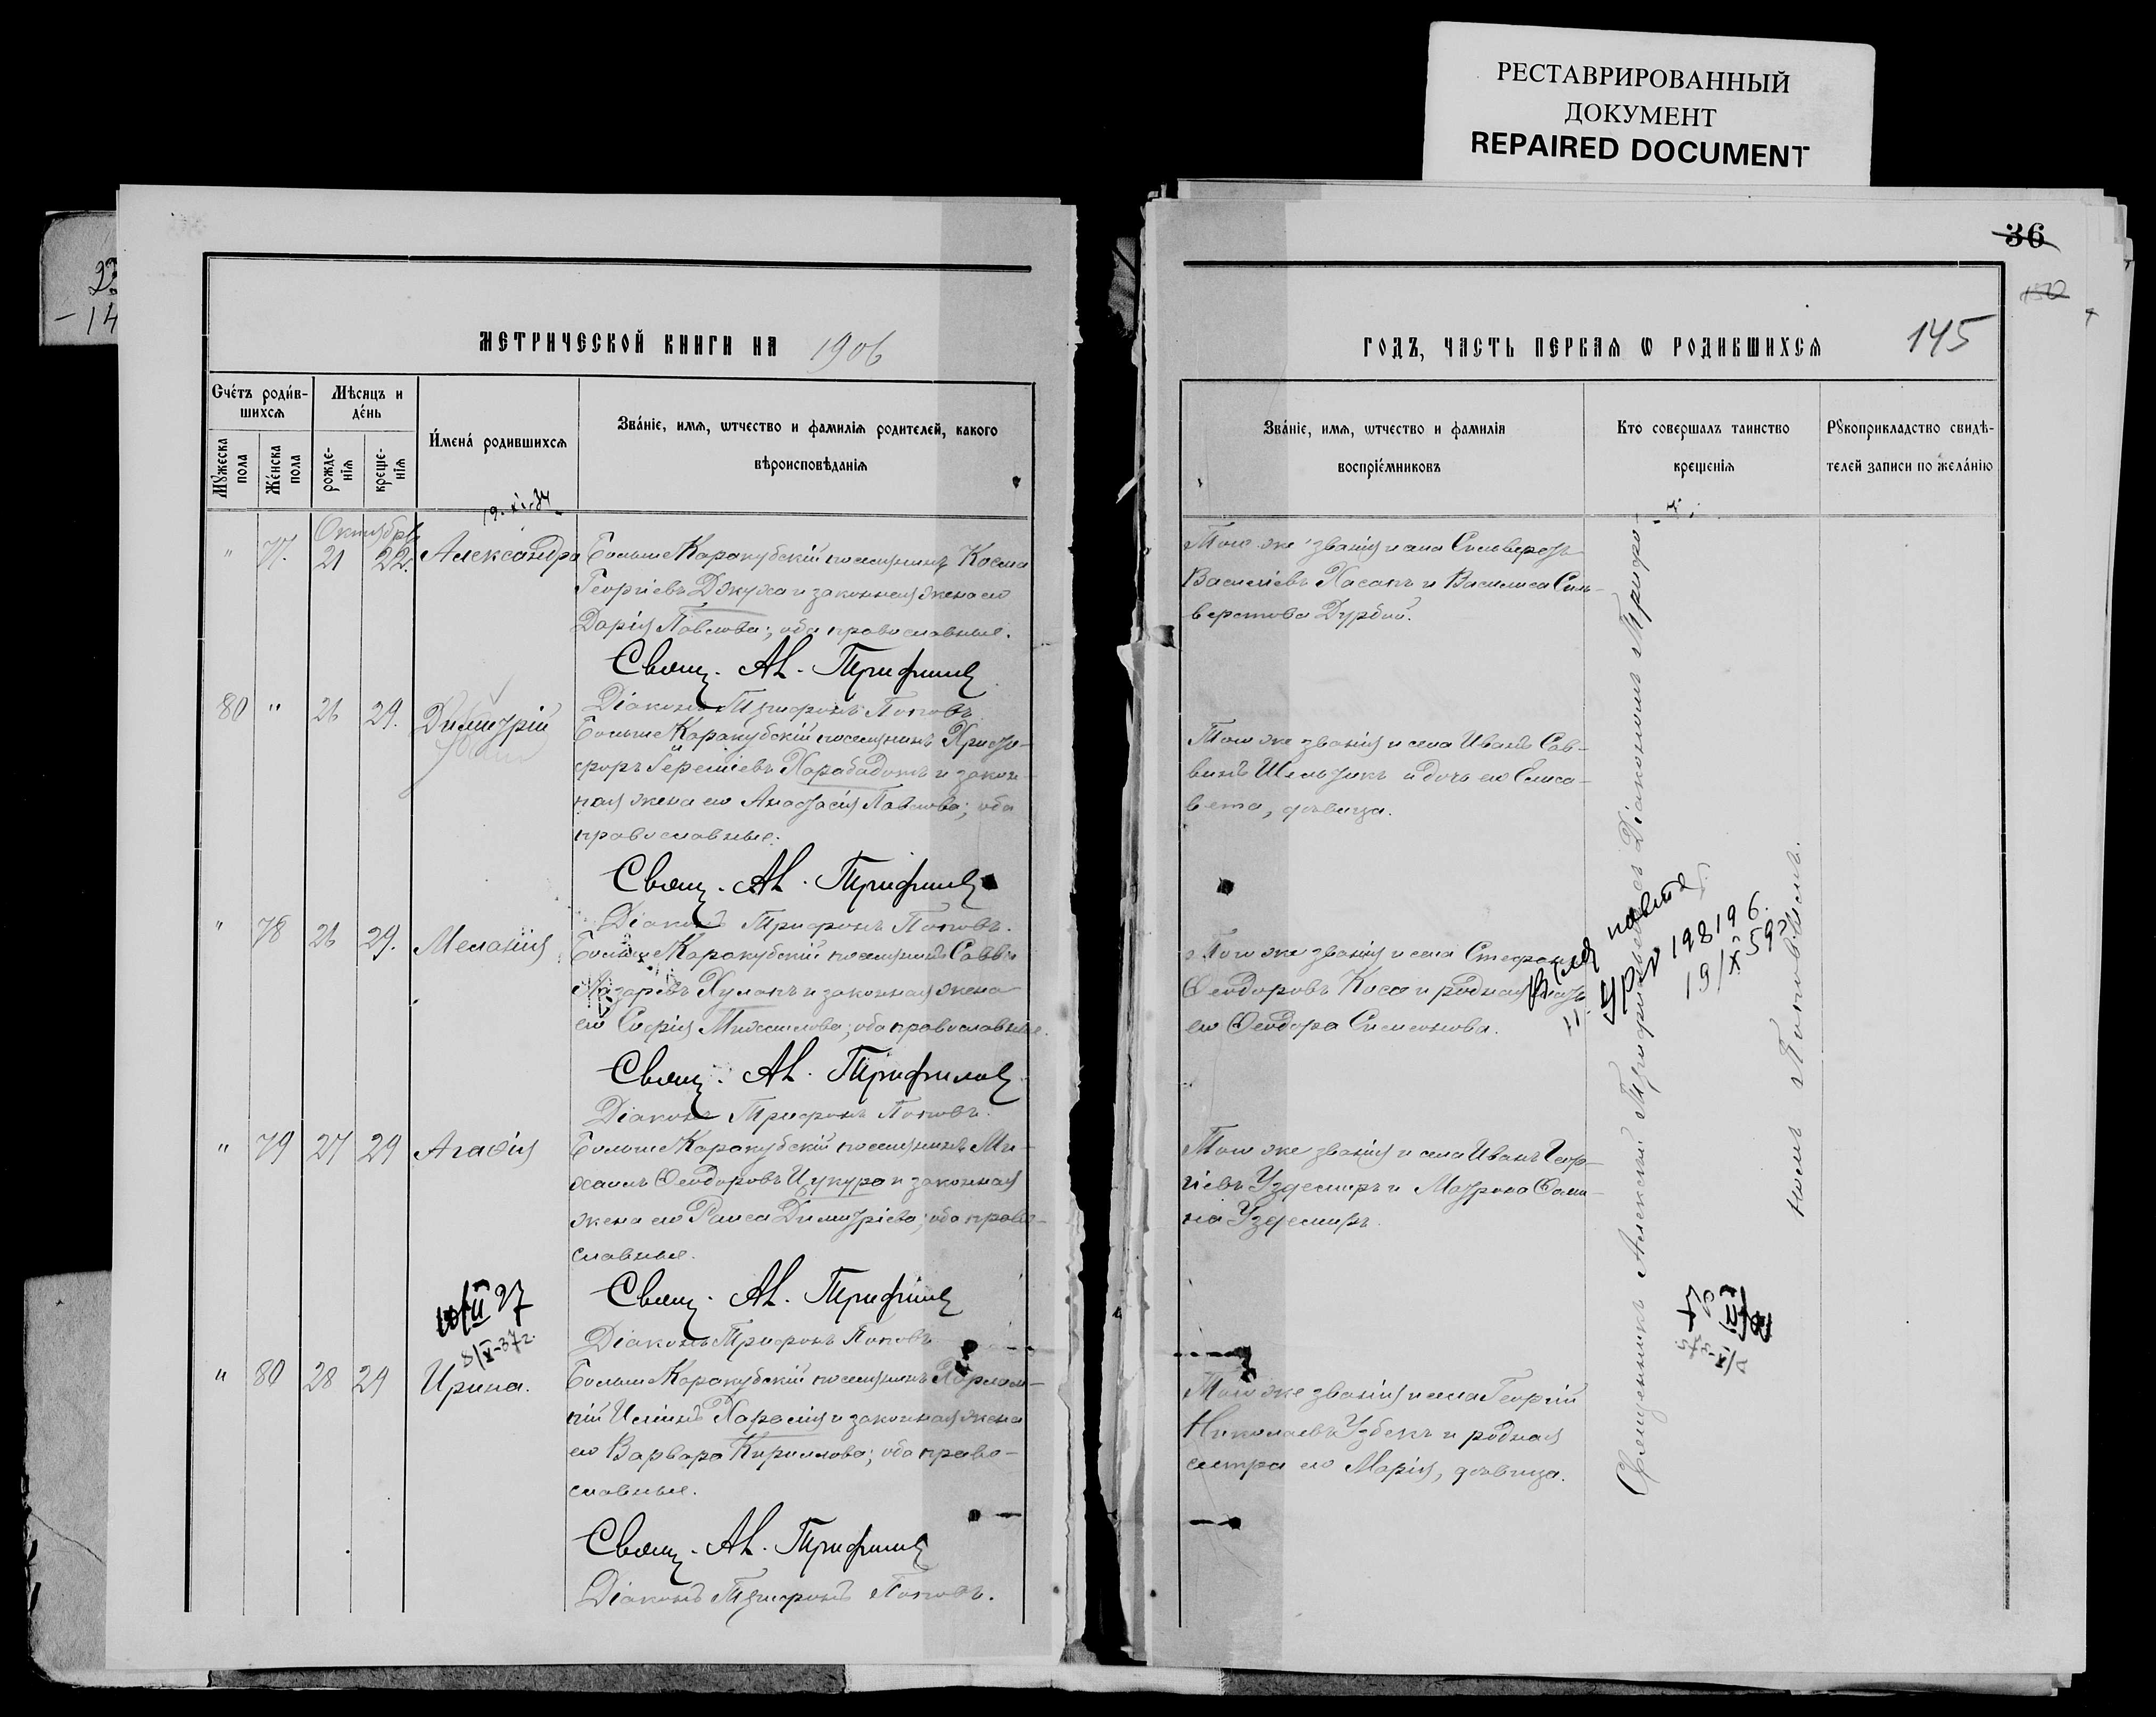 РЕСТАВРИРОВАННЫЙ
ДОКУМЕНТ
REPAIRED DOCUMENT
36
МЕТРИЧЕСКОЙ КНИГИ НА 1906
Счетъ родив-
шихся
Мѣсяцъ и
день
Мужеска
пола
Женска
пола
рожде-
нія
креще-
нія
Имена родившихся
Званіе, имя, ѡтчество и фамилія родителей, какого
вѣроисповѣданія
Октябрь
" 77. 21 22. Александра
Больше Каракубскій поселянинъ Косма
Георгіевъ Джуха и законная жена его
Дарія Павлова; оба православные.
Свящ. Ал. Трифильевъ
Діаконъ Трифонъ Поповъ
80 " 26 29. Димитрій
Больше Каракубскій поселянинъ Христо-
форъ Харабадотъ и закон-
ная жена его Анастасія Павлова; оба
православные.
Свящ. Ал. Трифильевъ
Діаконъ Трифонъ Поповъ.
" 78 26 29. Меланія
Больше Каракубскій поселянинъ Савва
Лазаревъ Хулахъ и законная жена
его Софія Михаилова; оба православные.
Свящ. Ал. Трифильевъ
Діаконъ Трифонъ Поповъ.
" 79 27 29 Агаѳія
Больше Каракубскій поселянинъ Ми-
хаилъ Ѳеодоровъ Цукура и законная
жена его Раиса Димитріева; оба право-
славные.
Свящ. Ал. Трифильевъ
Діаконъ Трифонъ Поповъ
8/X-37г.
" 80 28 29 Ирина.
Больше Каракубскій поселянинъ Харлам-
пій Иліинъ и законная жена
его Варвара Кириллова; оба право-
славные.
Свящ. Ал. Трифильевъ
Діаконъ Трифонъ Поповъ.
ГОДЪ, ЧАСТЬ ПЕРВАЯ Ѡ РОДИВШИХСЯ 145
Званіе, имя, ѡтчество и фамилія
воспріемниковъ
Кто совершалъ таинство
крещенія
Рукоприкладство свидѣ-
телей записи по желанію
Того же званія и села Сильверстъ
Василіевъ Хасапъ и Василиса Силь-
верстова Дурбой.
Того же званія и села Иванъ Сав-
винъ и дочь его Елиса-
вета, дѣвица.
Того же званія и села Стефанъ
Ѳеодоровъ Коса и родная мать
его Ѳеодора Симеонова.
Того же званія и села Иванъ Геор-
гіевъ Уздемиръ и Матрона Ѳоми-
на Уздемиръ.
Того же званія и села Георгій
Николаевъ Узбекъ и родная
сестра его Марія, дѣвица.
Священникъ Алексій Трифильевъ съ Діакономъ Трифо-
номъ Поповымъ.
198196.
19/X 59